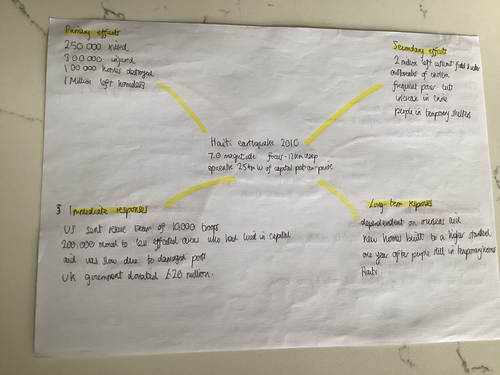 Primary effects
250 000 killed
300 000 injured
100 000 homes destroyed
1 Million left homeless
Secondary effects
2 million left without food & water
outbreaks of cholera
frequent power cuts
increase in crime
people in temporary shelters
Haiti earthquake 2010
7.0 magnitude focus - 12km deep
epicentre 25km W of capital port-au-prince
Immediate responses
US sent rescue team of 10,000 troops
200,000 moved to less effected areas who had lived in capital
aid was slow due to damaged port
UK government donated £20 million.
Long-term reponses
dependendent on overseas aid
new homes built to a higher standard
one year after people still in temporary homes
Haiti